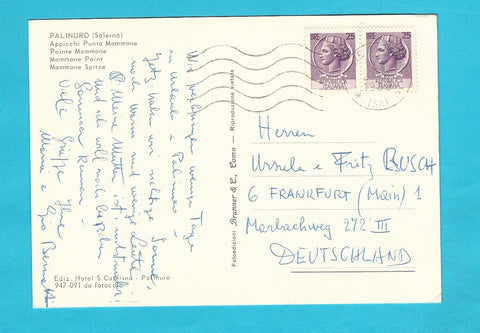 PALINURO (Salerno)
Appicchi Punta Mammone
Pointe Mammone
Mammone Point
Mammone Spitze
Wir verbringen wenige Tage
in Urlaub in Palinuro
Jetzt haben wir richtige Sonne,
noch warm und wenige Leute!
Meine Mutter ist mit
Und ich will noch
Sommer
Viele Grüsse Ihre
Maria e
Ediz. Hotel S. Caterina - Palinuro
947-091 da fotocolor
Fotoedizioni Brunner & C., Como - Riproduzione vietata
25
25
(SA)
Herren
Ursula e Fritz BUSCH
6 FRANKFURT (Main) 1
Marbachweg 272 III
DEUTSCHLAND